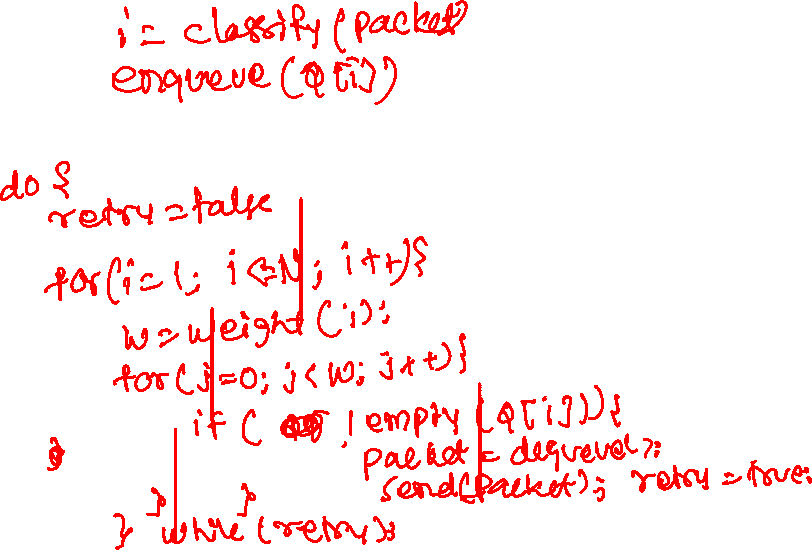 i = classify(packet
enqueue(Q[i])
do {
retry = false
for(i=1; i<=N; i++){
w = weight(i);
for(j=0; j<w; j++){
if( !empty(Q[i])){
packet = dequeue();
send(packet); retry = true;
}
} }
} while(retry);